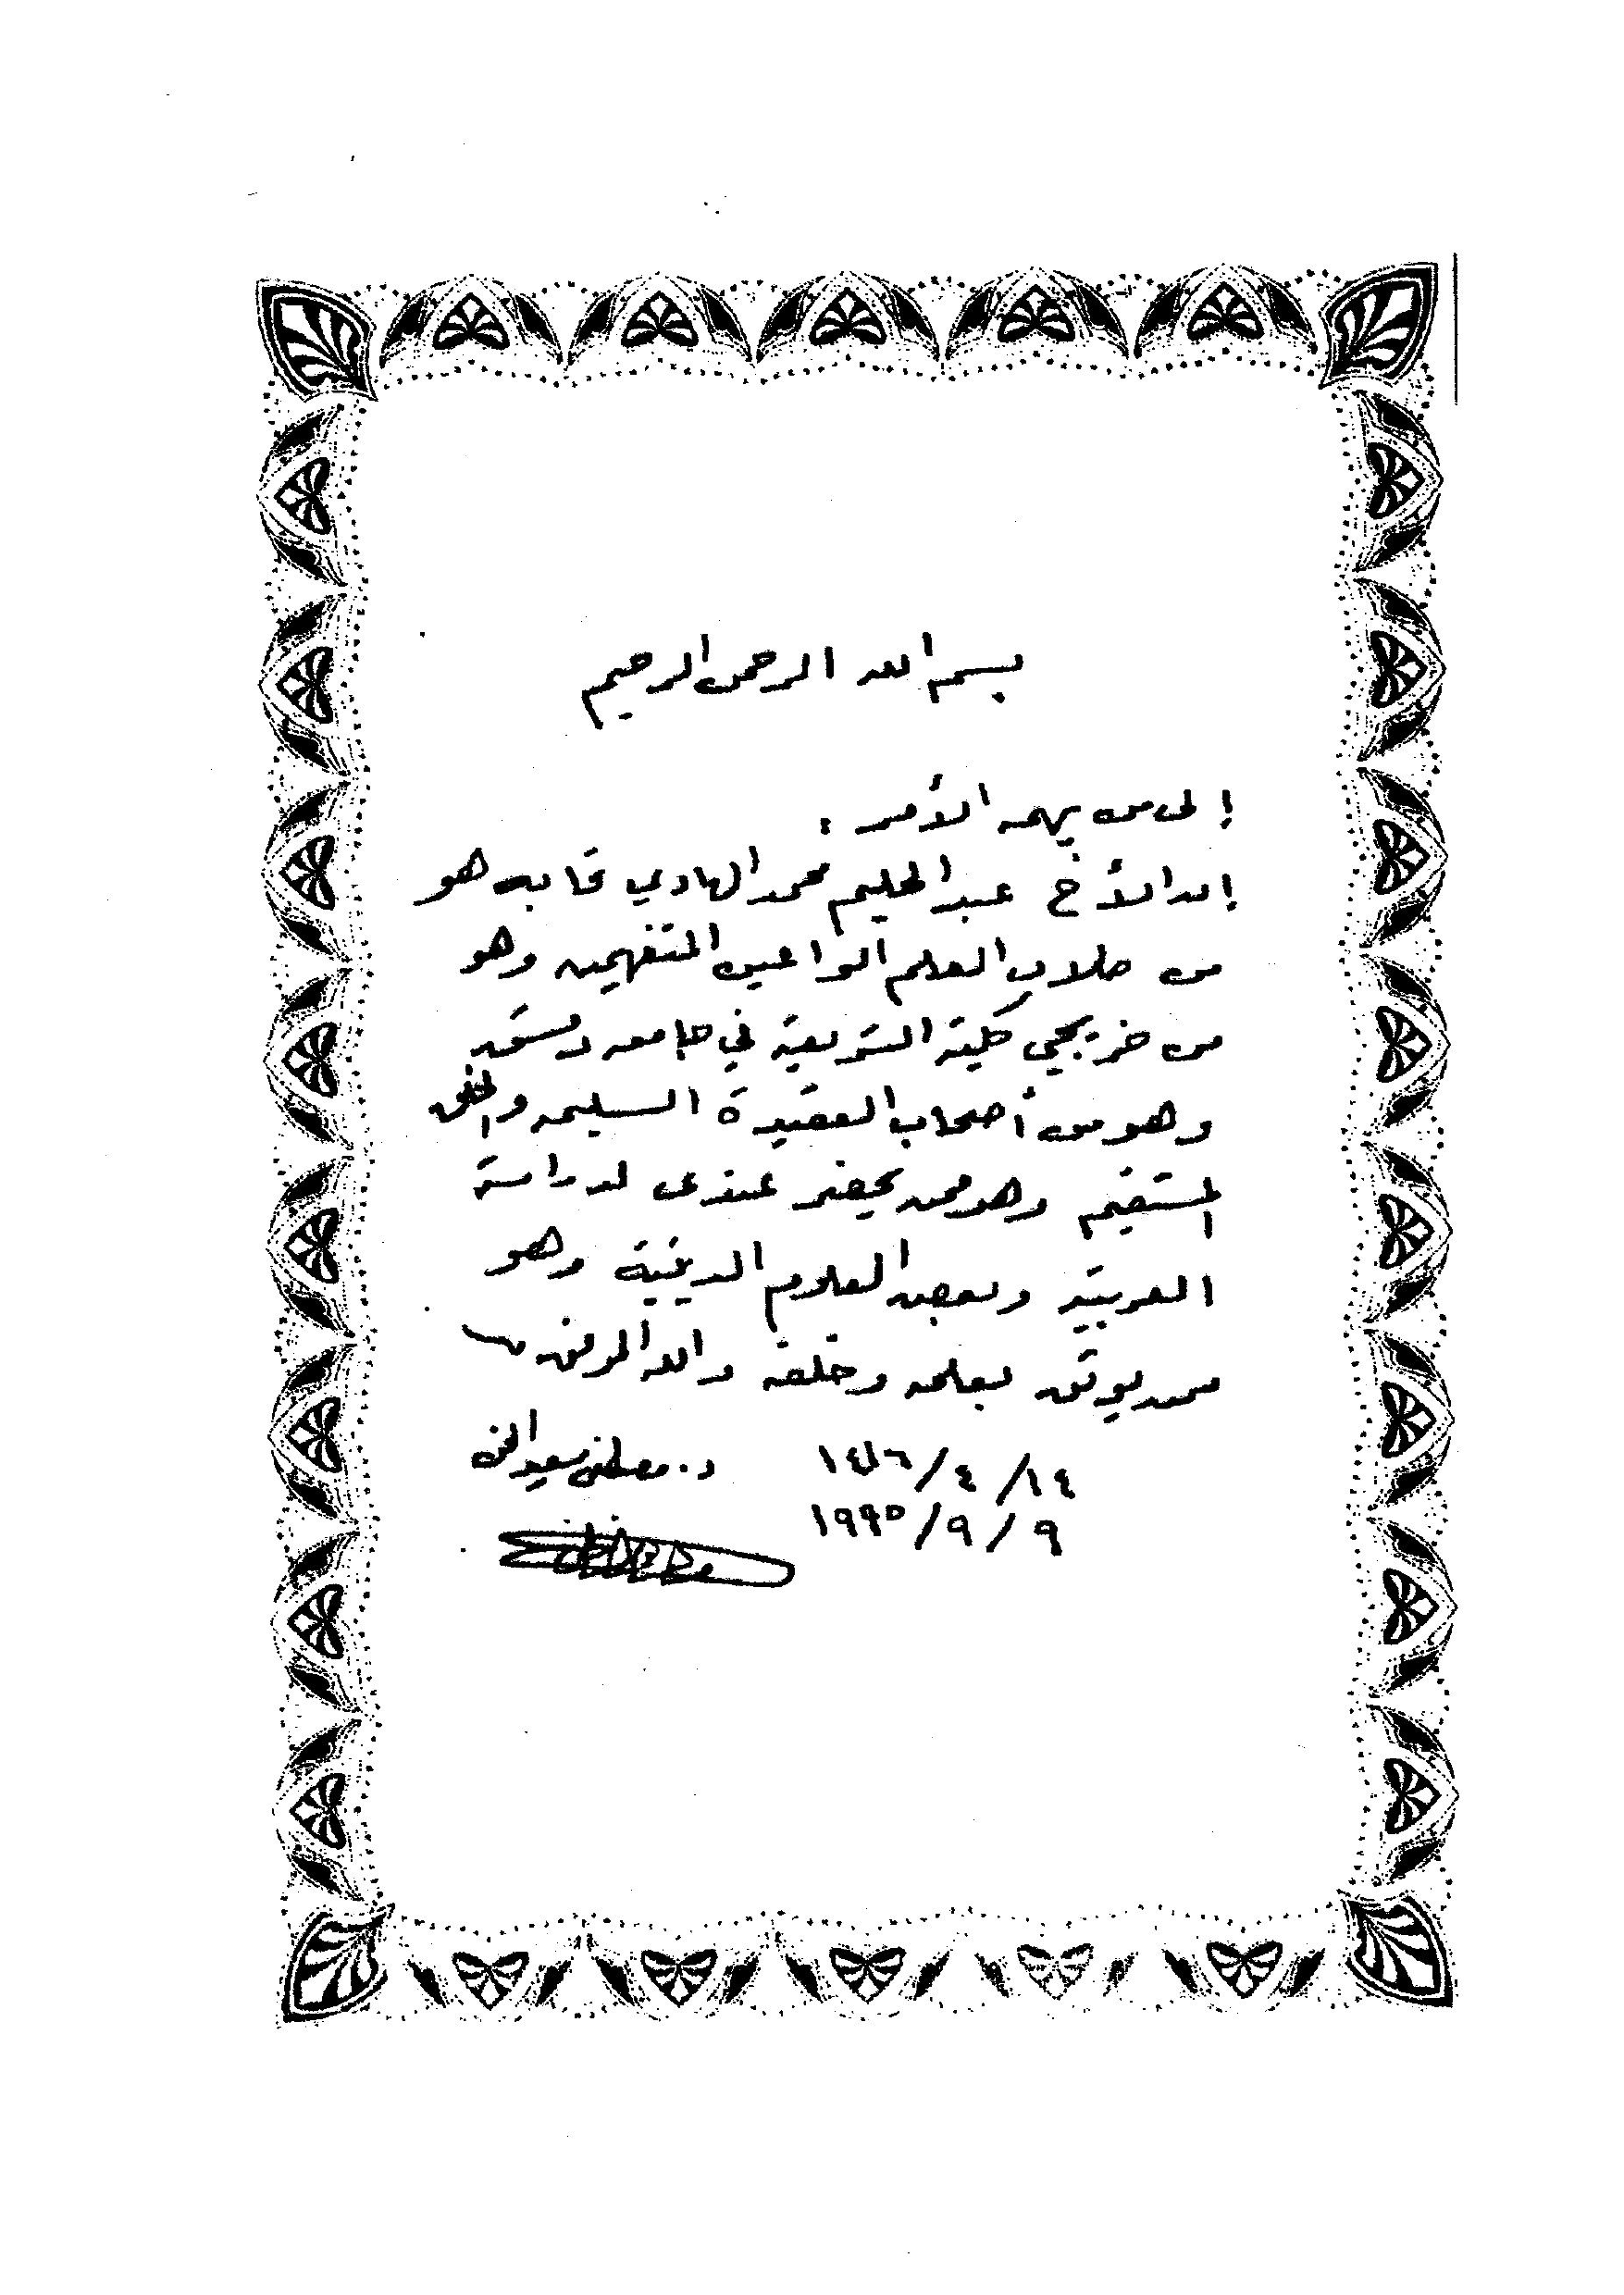 بسم الله الرحمن الرحيم
إلى من يهمه الأمر :
إن الأخ عبد الحليم محمد الهادي قابه هو
من طلاب العلم الواعين المتفهمين وهو
من خريجي كلية الشريعة في جامعة دمشق
وهو من أصحاب العقيدة السليمة والخلق
المستقيم وهو ممن يحضر عندي لدراسة
العربية وبعض العلوم الدينية وهو
ممن يوثق بعلمه وخلقه والله الموفق
١٤/ ٤ / ١٤١٦ د. مصطفى سعيد الخن
٩ / ٩ / ١٩٩٥